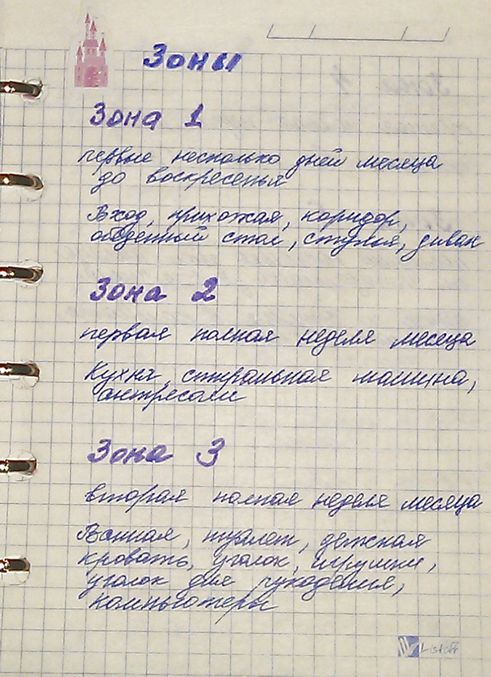 Зоны
Зона 1
первые несколько дней месяца
до воскресенья
Вход, прихожая, коридор,
обеденный стол, стулья, диван
Зона 2
первая полная неделя месяца
Кухня, стиральная машина,
антресоли
Зона 3
вторая полная неделя месяца
Ванная, туалет, детская
кровать, уголок, игрушки,
уголок для рукоделия,
компьютеры
Listoff